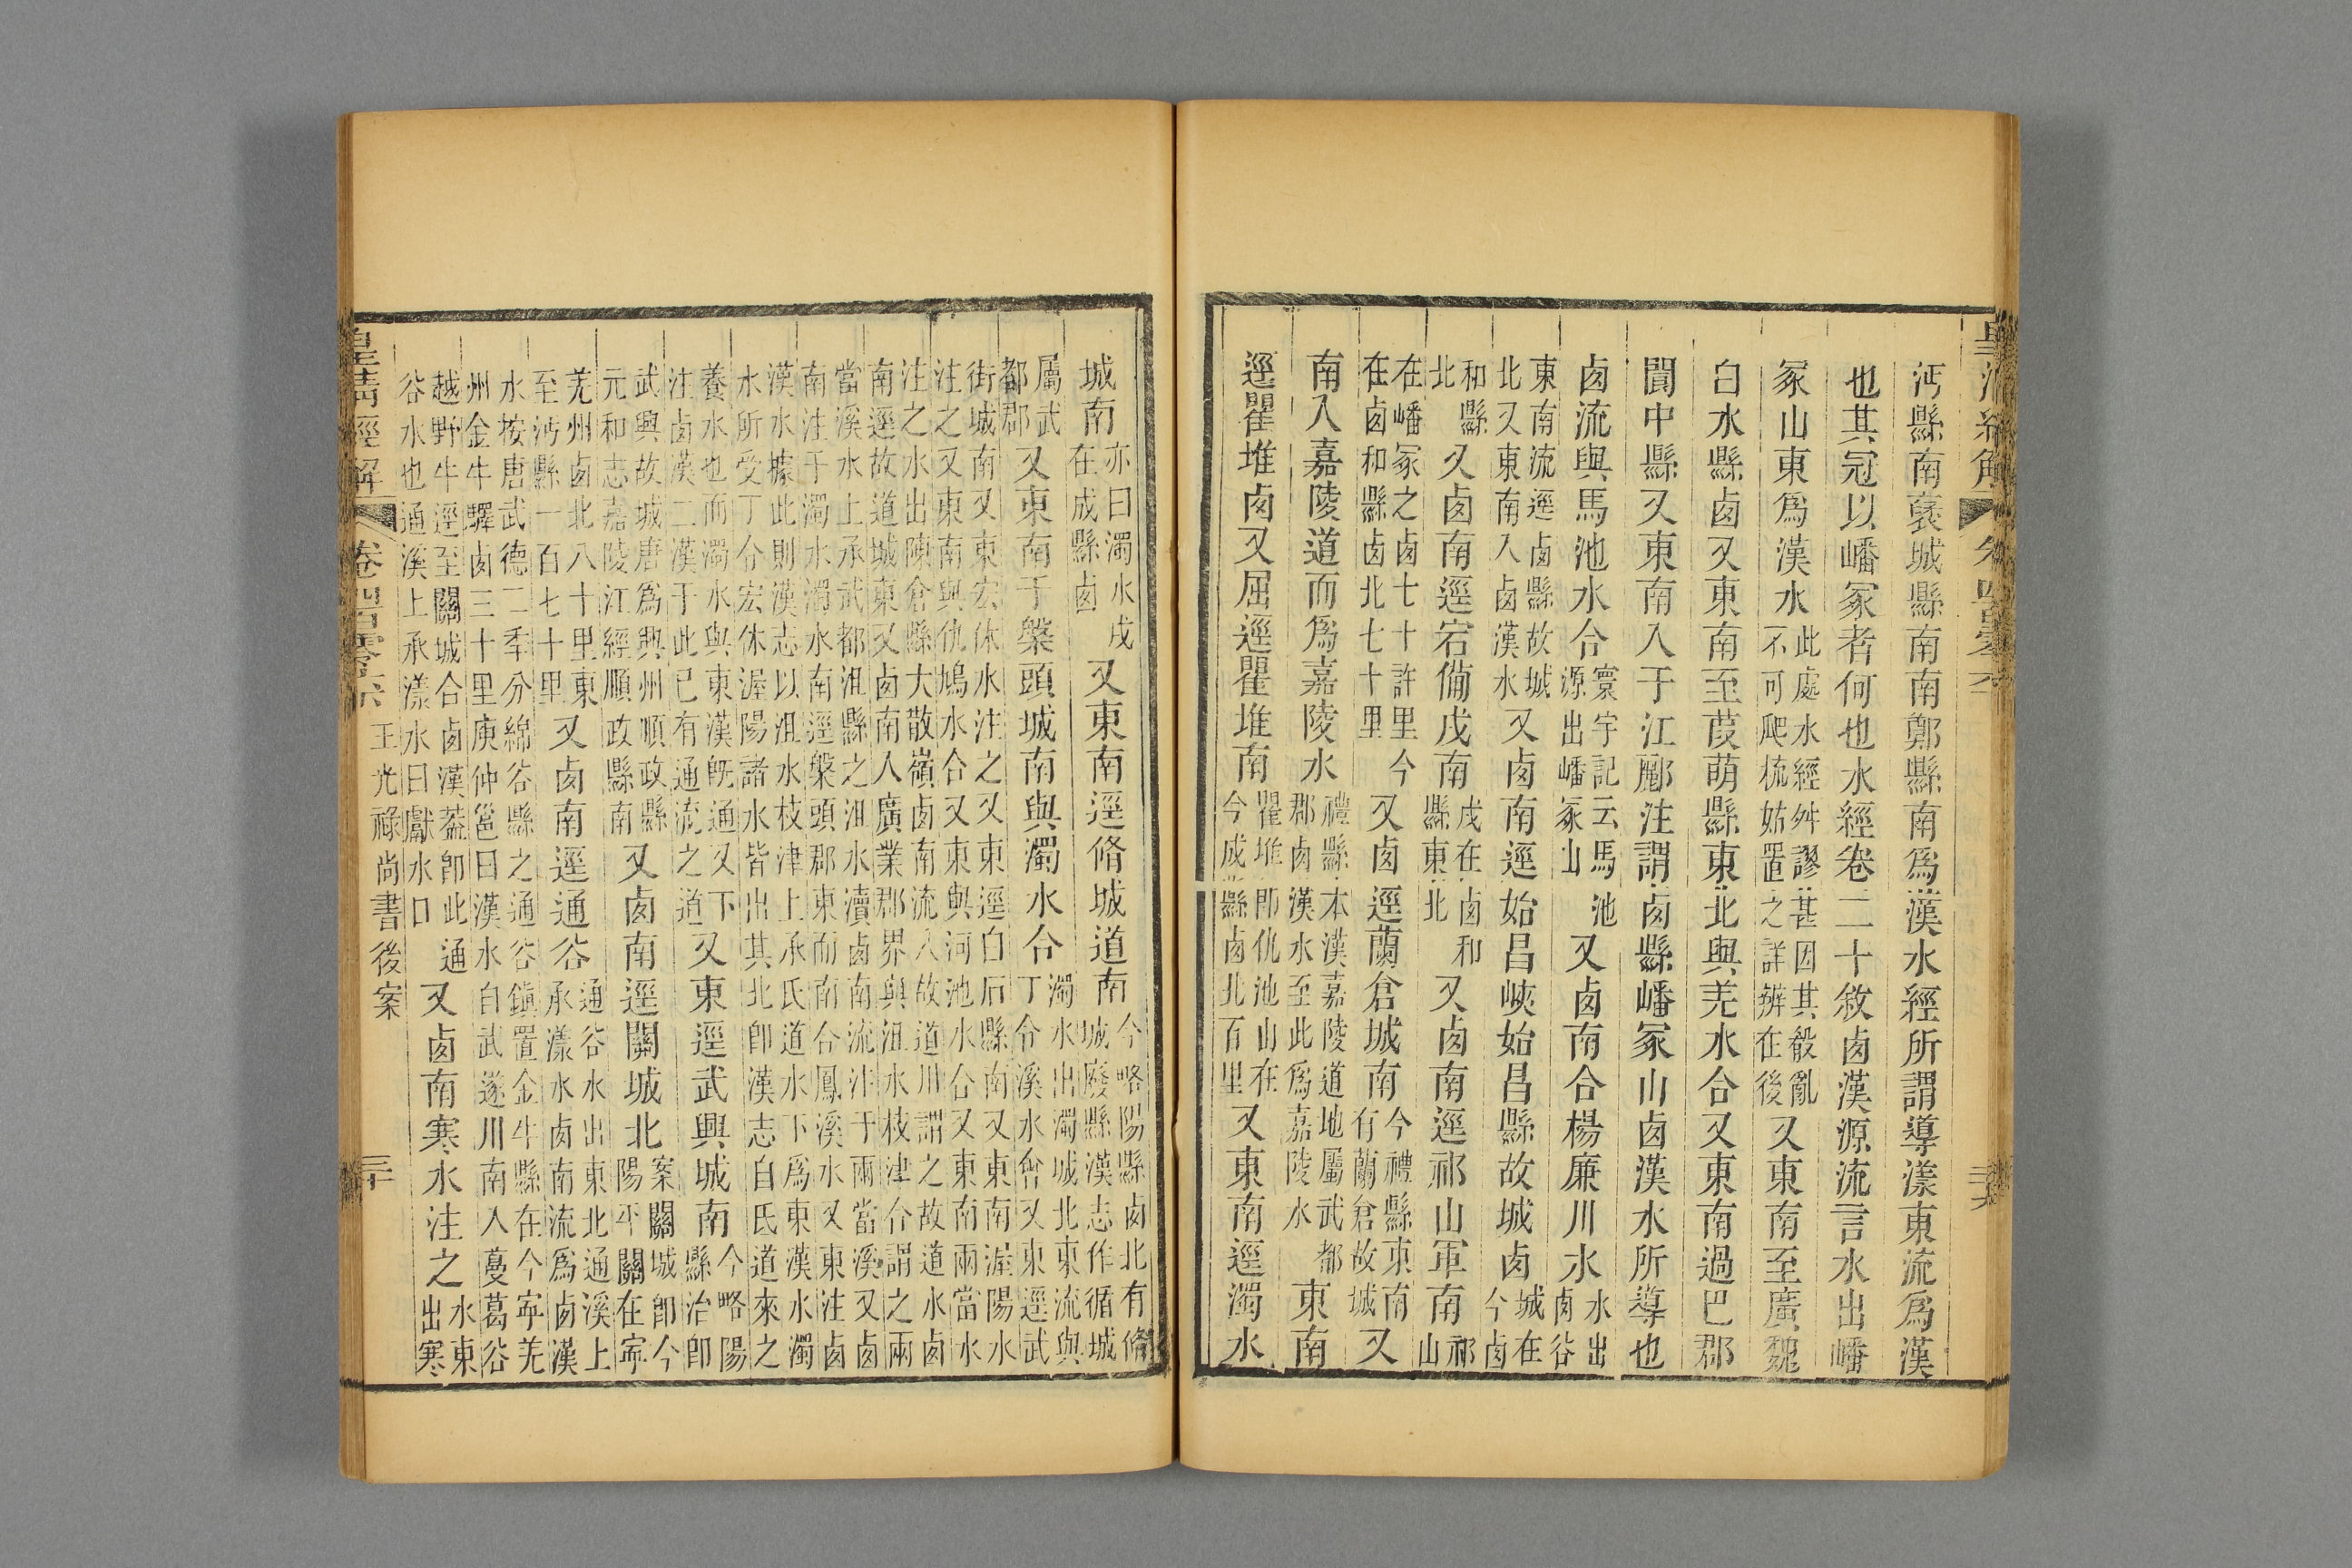 皇清經解 卷四百零六 二十九
沔縣南襃城縣南南鄭縣南爲漢水經所謂導漾東流爲漢
也其冠以嶓冢者何也水經卷二十敘卥漢源流言水出嶓
冢山東爲漢水此處水經舛謬甚因其殽亂不可爬梳姑置之詳辨在後又東南至廣魏
白水縣卥又東南至葭萌縣東北與羌水合又東南過巴郡
閬中縣又東南入于江酈注謂卥縣嶓冢山卥漢水所導也
卥流與馬池水合寰宇記云馬池源出嶓冢山又卥南合楊廉川水水出卥谷
東南流逕卥縣故城北又東南入卥漢水又卥南逕始昌峽始昌縣故城卥城在今卥
和縣北又卥南逕宕備戍南戍在卥和縣東北又卥南逕祁山軍南祁山
在嶓冢之卥七十許里今在卥和縣卥北七十里又卥逕蘭倉城南今禮縣東南有蘭倉故城又
南入嘉陵道而爲嘉陵水禮縣本漢嘉陵道地屬武都郡卥漢水至此爲嘉陵水東南
逕瞿堆卥又屈逕瞿堆南瞿堆卽仇池山在今成縣卥北百里又東南逕濁水
城南亦曰濁水戍在成縣卥又東南逕脩城道南今略陽縣卥北有脩城廢縣漢志作循城
屬武都郡又東南于槃頭城南與濁水合濁水出濁城北東流與丁令溪水會又東逕武
街城南又東宏休水注之又東逕白石縣南又東南渥陽水
注之又東南與仇鳩水合又東與河池水合又東南兩當水
注之水出陳倉縣大散嶺卥南流入故道川謂之故道水卥
南逕故道城東又卥南入廣業郡界與沮水枝津合謂之兩
當溪水上承武都沮縣之沮水瀆卥南流注于兩當溪又卥
南注于濁水濁水南逕槃頭郡東而南合鳳溪水又東注卥
漢水據此則漢志以沮水枝津上承氐道水下爲東漢水濁
水所受丁令宏休渥陽諸水皆出其北卽漢志自氐道來之
養水也而濁水與東漢旣通又下注卥漢二漢于此已有通流之道又東逕武興城南今略陽縣治卽
武興故城唐爲興州順政縣元和志嘉陵江經順政縣南又卥南逕關城北案關城卽今陽平關在寧
羌州卥北八十里東至沔縣一百七十里又卥南逕通谷通谷水出東北通溪上承漾水卥南流爲卥漢
水按唐武德二秊分綿谷縣之通谷鎭置金牛縣在今寧羌
州金牛驛卥三十里庾仲邕曰漢水自武遂川南入蔓葛谷
越野牛逕至關城合卥漢葢卽此通谷水也通溪上承漾水曰獻水口又卥南寒水注之水東出寒
皇清經解 卷四百零六 王光祿尚書後案 三十